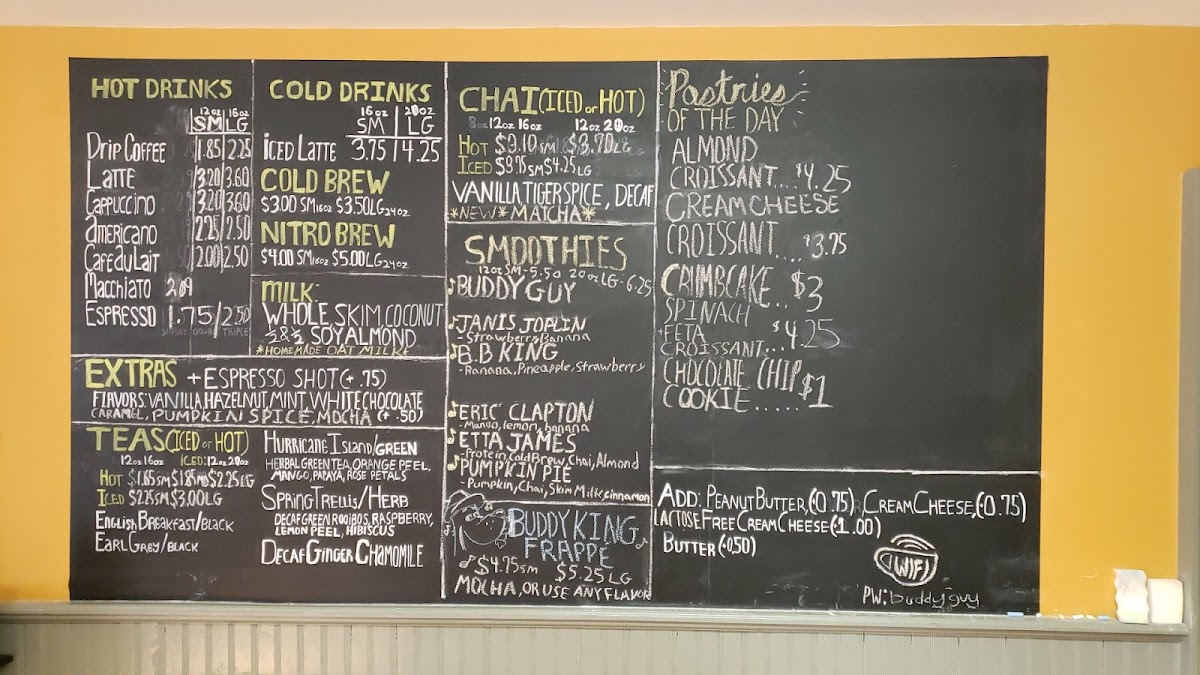 HOT DRINKS
12oz 16oz
SM LG
DRIP COFFEE 1.85 2.25
LATTE 3.20 3.60
CAPPUCCINO 3.20 3.60
AMERICANO 2.25 2.50
CAFE DU LAIT 2.00 2.50
MACCHIATO 2.09
ESPRESSO 1.75/2.50
COLD DRINKS
16oz 20oz
SM LG
ICED LATTE 3.75 4.25
COLD BREW
$3.00 SM 16oz $3.50 LG 24oz
NITRO BREW
$4.00 SM 16oz $5.00 LG 24oz
MILK:
WHOLE SKIM COCONUT
½ & ½ SOY ALMOND
*HOMEMADE OAT MILK
EXTRAS + ESPRESSO SHOT (+ .75)
FLAVORS: VANILLA, HAZELNUT, MINT, WHITE CHOCOLATE
CARAMEL, PUMPKIN SPICE, MOCHA (+ .50)
TEAS (ICED or HOT)
12oz 16oz ICED: 12oz 20oz
HOT $1.85 SM $1.85 MD $2.25 LG
ICED $2.25 SM $3.00 LG
ENGLISH BREAKFAST/BLACK
EARL GREY/BLACK
HURRICANE ISLAND/GREEN
HERBAL GREEN TEA, ORANGE PEEL,
MANGO, PAPAYA, ROSE PETALS
SPRING TRELLIS/HERB
DECAF GREEN ROOIBOS, RASPBERRY,
LEMON PEEL, HIBISCUS
DECAF GINGER CHAMOMILE
CHAI (ICED or HOT)
8oz 12oz 16oz 12oz 20oz
HOT $3.10 SM $3.70 LG
ICED $3.75 SM $4.25 LG
VANILLA TIGER SPICE, DECAF
*NEW* MATCHA*
SMOOTHIES
12oz SM-5.50 20oz LG-6.25
BUDDY GUY
JANIS JOPLIN
- Strawberry, Banana
B.B KING
- Banana, Pineapple, Strawberry
ERIC CLAPTON
- Mango, lemon, banana
ETTA JAMES
- Protein, Cold Brew, Chai, Almond
PUMPKIN PIE
- Pumpkin, Chai, Skim Milk, cinnamon
BUDDY KING
FRAPPE
$4.75 SM $5.25 LG
MOCHA, OR USE ANY FLAVOR
Pastries
OF THE DAY
ALMOND
CROISSANT.... $4.25
CREAM CHEESE
CROISSANT.... $3.75
CRUMBCAKE... $3
SPINACH
+ FETA $4.25
CROISSANT...
CHOCOLATE CHIP $1
COOKIE.....
ADD: PEANUT BUTTER, (+0.75), CREAM CHEESE, (+0.75)
LACTOSE FREE CREAM CHEESE (+1.00)
BUTTER (+0.50)
WIFI
PW: buddyguy